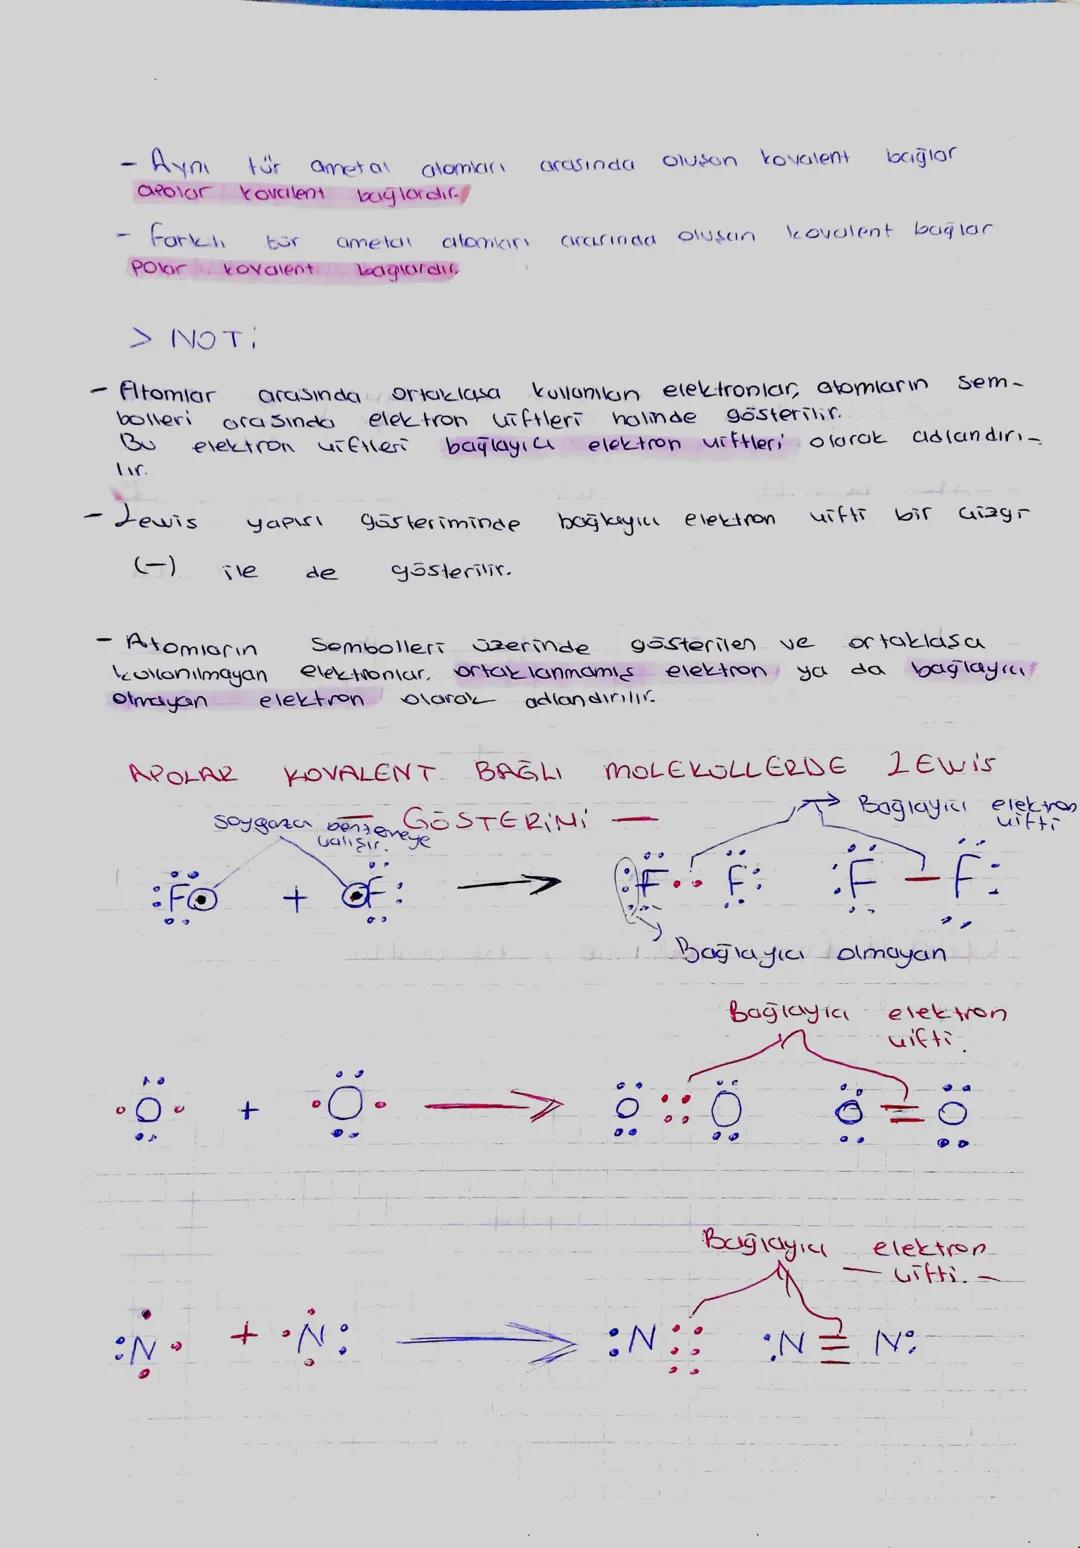 - Aynı tür ametal atomları arasında oluşan kovalent bağlar
apolar kovalent bağlardır.
- Farklı tür ametal atomları ararında oluşan kovalent bağlar
Polar kovalent bağlardır.
> NOT:
- Atomlar arasında ortaklaşa kullanılan elektronlar, atomların sem-
bolleri arasında elektron çiftleri halinde gösterilir.
Bu elektron çiftleri bağlayıcı elektron çiftleri olarak adlandırı-
lır.
- Lewis yapısı gösteriminde bağlayıcı elektron çifti bir çizgi
(-) ile de gösterilir.
- Atomların Sembolleri üzerinde gösterilen ve ortaklaşa
kullanılmayan elektronlar, ortaklanmamış elektron ya da bağlayıcı
olmayan elektron olarak adlandırılır.
APOLAR KOVALENT BAĞLI MOLEKÜLLERDE LEWİS
— GÖSTERİMİ —
Soygaza benzemeye
çalışır.
Bağlayıcı elektron
çifti
:F + F: → :F : F: :F — F:
Bağlayıcı olmayan
Bağlayıcı elektron
çifti.
·O· + ·O· → O :: O O = O
Bağlayıcı elektron
— çifti. —
:N· + ·N: → :N ⋮⋮ :N ≡ N: